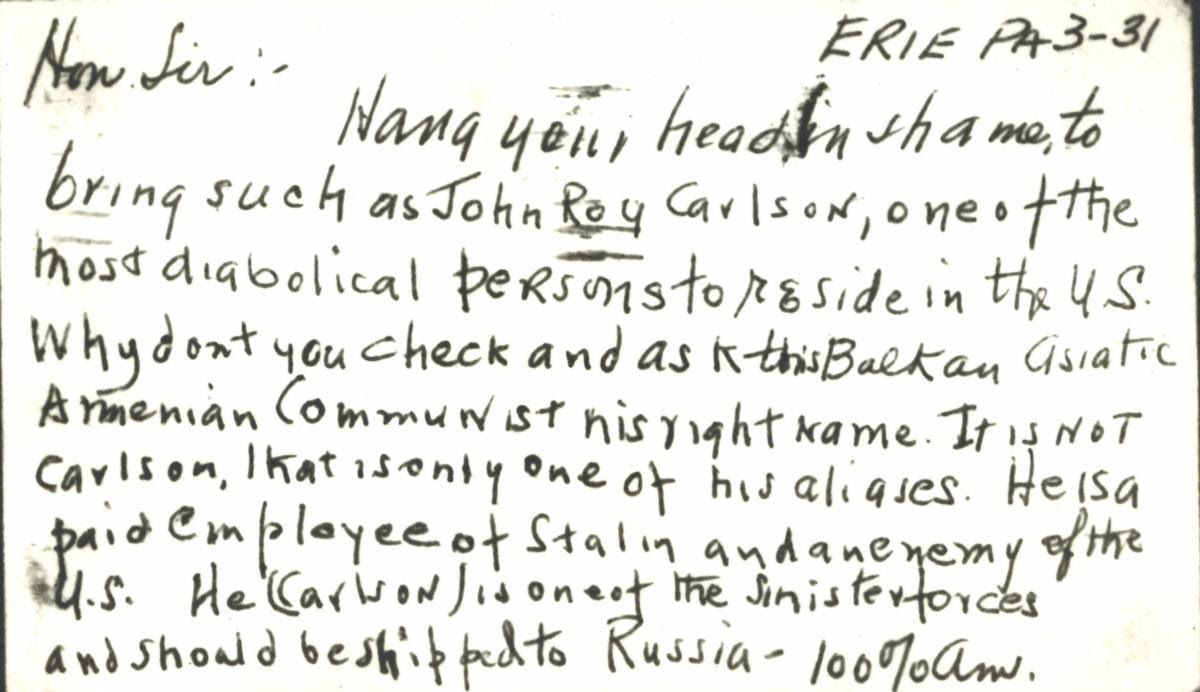 ERIE PA 3-31
Hon. Sir :-
Hang your head in shame, to
bring such as John Roy Carlson, one of the
most diabolical persons to reside in the U.S.
Why dont you check and ask this Balkan asiatic
Armenian Communist his right name. It is NOT
Carlson, that is only one of his aliases. He is a
paid employee of Stalin and an enemy of the
U.S. He (Carlson) is one of the sinister forces
and should be shipped to Russia - 100% Am.